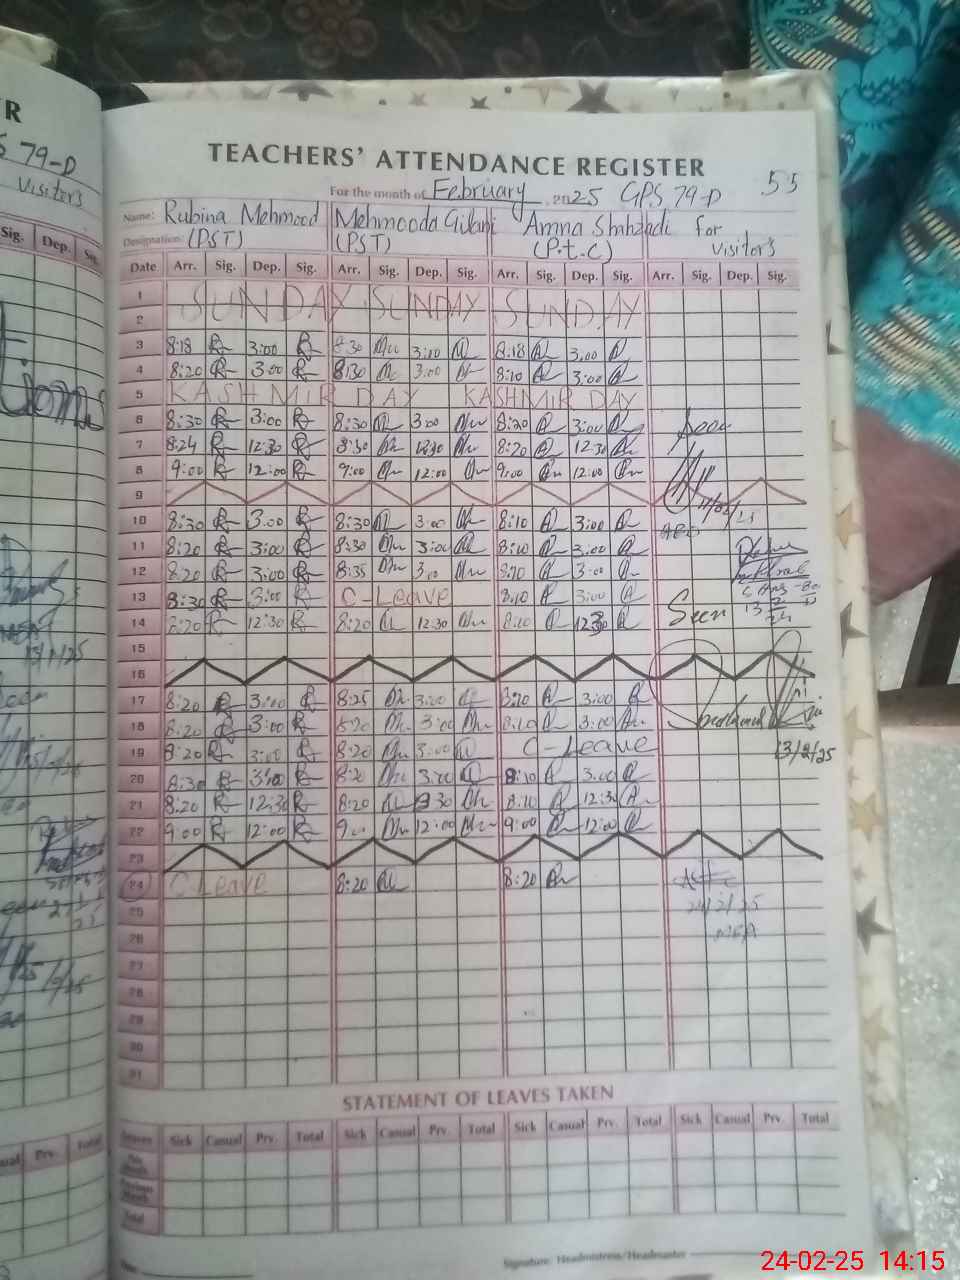 R
79-D
Visitors
Sig. Dep. Sig.
TEACHERS' ATTENDANCE REGISTER
For the month of February, 2025 GPS 79-D 55
Name: Rubina Mehmood Mehmooda Gilani Amna Shahzadi for
Designation: (PST) (PST) (P.t.C) Visitors
Date Arr. Sig. Dep. Sig. Arr. Sig. Dep. Sig. Arr. Sig. Dep. Sig. Arr. Sig. Dep. Sig.
1 SUNDAY SUNDAY SUNDAY
2
3 8:18 3:00 8:30 3:00 8:18 3:00
4 8:20 3:00 8:30 3:00 8:10 3:00
5 KASHMIR DAY KASHMIR DAY
6 8:30 3:00 8:30 3:00 8:20 3:00 Seen
7 8:24 12:30 8:30 12:30 8:20 12:30
8 9:00 12:00 9:00 12:00 9:00 12:00
9
10 8:30 3:00 8:30 3:00 8:10 3:00
11 8:20 3:00 8:30 3:00 8:10 3:00
12 8:20 3:00 8:35 3:00 8:10 3:00
13 8:30 3:00 C-Leave 8:10 3:00 Seen
14 8:20 12:30 8:20 12:30 8:10 12:30
15
16
17 8:20 3:00 8:25 3:00 8:20 3:00
18 8:20 3:00 8:20 3:00 8:10 3:00
19 8:20 3:00 8:20 3:00 C-Leave 13/2/25
20 8:30 3:00 8:20 3:00 8:10 3:00
21 8:20 12:30 8:20 8:10 12:30
22 9:00 12:00 12:00 9:00 12:00
23
24 C-Leave 8:20 8:20
25 24/2/25
26 MEA
27
28
29
30
31
STATEMENT OF LEAVES TAKEN
Leaves Sick Casual Prv. Total Sick Casual Prv. Total Sick Casual Prv. Total Sick Casual Prv. Total
This Month
Previous Month
Total
Signature: Headmistress/Headmaster
24-02-25 14:15